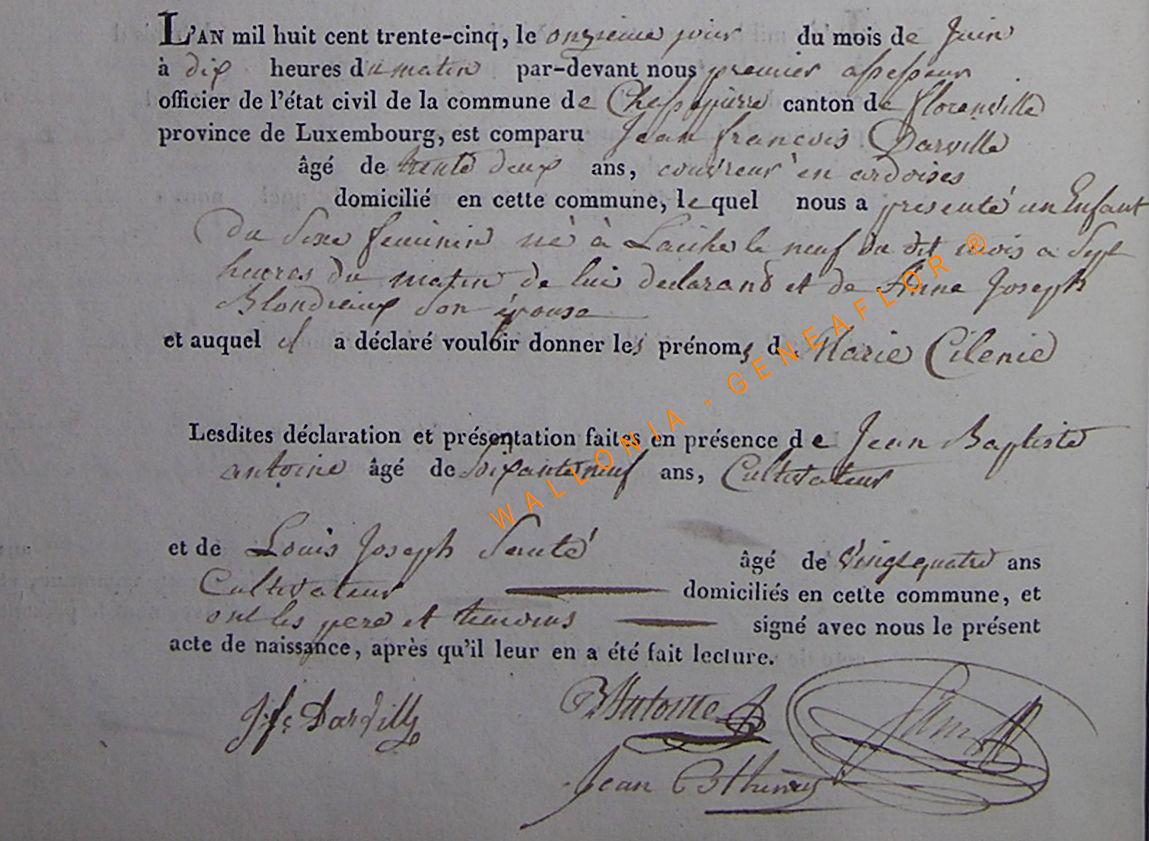 L'AN mil huit cent trente-cinq, le onzieme jour du mois de Juin
à dix heures du matin par-devant nous premier assesseur
officier de l'état civil de la commune de Chassepierre canton de florenville
province de Luxembourg, est comparu Jean françois Darville
âgé de trente deux ans, couvreur en ardoises
domicilié en cette commune, le quel nous a présenté un Enfant
du Sexe feminin né à Laiche le neuf du dit mois a Sept
heures du matin de lui declarand et de Anne Joseph
Blondieux son épouse
et auquel il a déclaré vouloir donner les prénoms d Marie Cilenie
Lesdites déclaration et présentation faites en présence de Jean Baptiste
antoine âgé de soixante neuf ans, Cultivateur
et de Louis Joseph âgé de vingt quatre ans
Cultivateur domiciliés en cette commune, et
ont les pere et temoins signé avec nous le présent
acte de naissance, après qu'il leur en a été fait lecture.
J. f. Darville
B Antoine
Jean
WALLONIA - GENEAFLOR ®